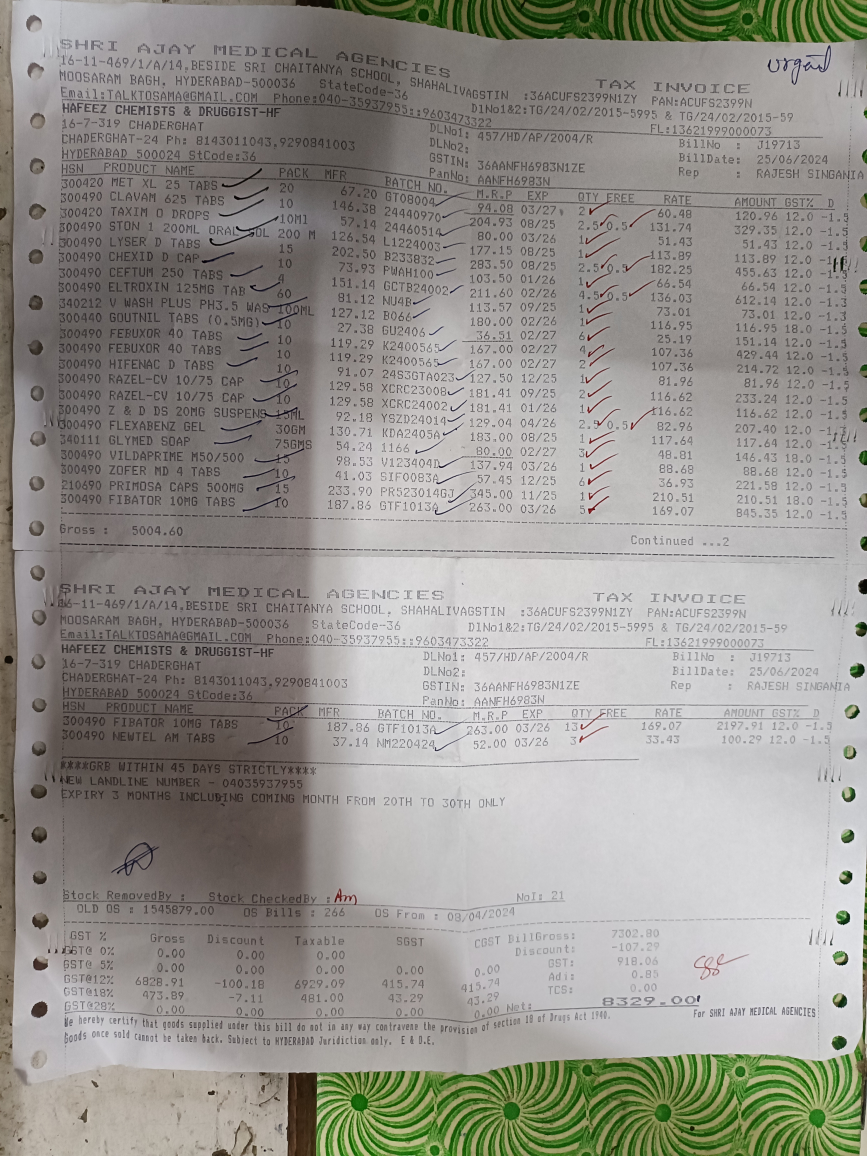 SHRI AJAY MEDICAL AGENCIES TAX INVOICE urgent
16-11-469/1/A/14,BESIDE SRI CHAITANYA SCHOOL, SHAHALIVAGSTIN :36ACUFS2399N1ZY PAN:ACUFS2399N
MOOSARAM BAGH, HYDERABAD-500036 StateCode-36 DlNo1&2:TG/24/02/2015-5995 & TG/24/02/2015-59
Email:TALKTOSAMA@GMAIL.COM Phone:040-35937955::9603473322 FL:13621999000073
HAFEEZ CHEMISTS & DRUGGIST-HF DLNo1: 457/HD/AP/2004/R BillNo : J19713
16-7-319 CHADERGHAT DLNo2: BillDate: 25/06/2024
CHADERGHAT-24 Ph: 8143011043,9290841003 GSTIN: 36AANFH6983N1ZE Rep : RAJESH SINGANIA
HYDERABAD 500024 StCode:36 PanNo: AANFH6983N
HSN PRODUCT NAME PACK MFR BATCH NO. M.R.P EXP QTY FREE RATE AMOUNT GST% D
300420 MET XL 25 TABS 20 67.20 GT08004 94.08 03/27 2 60.48 120.96 12.0 -1.5
300490 CLAVAM 625 TABS 10 146.38 24440970 204.93 08/25 2.5 0.5 131.74 329.35 12.0 -1.5
300420 TAXIM O DROPS 10Ml 57.14 24460514 80.00 03/26 1 51.43 51.43 12.0 -1.5
300490 STON 1 200ML ORAL SOL 200 M 126.54 L1224003 177.15 08/25 1 113.89 113.89 12.0 -1.5
300490 LYSER D TABS 15 202.50 B233832 283.50 08/25 2.5 0.5 182.25 455.63 12.0 -1.5
300490 CHEXID D CAP 10 73.93 PWAH100 103.50 01/26 1 66.54 66.54 12.0 -1.5
300490 CEFTUM 250 TABS 4 151.14 GCTB24002 211.60 02/26 4.5 0.5 136.03 612.14 12.0 -1.5
300490 ELTROXIN 125MG TAB 60 81.12 NU4B 113.57 09/25 1 73.01 73.01 12.0 -1.5
340212 V WASH PLUS PH3.5 WAS 100ML 127.12 B066 180.00 02/26 1 116.95 116.95 18.0 -1.5
300440 GOUTNIL TABS (0.5MG) 10 27.38 GU2406 36.51 02/27 6 25.19 151.14 12.0 -1.5
300490 FEBUXOR 40 TABS 10 119.29 K2400565 167.00 02/27 4 107.36 429.44 12.0 -1.5
300490 FEBUXOR 40 TABS 10 119.29 K2400565 167.00 02/27 2 107.36 214.72 12.0 -1.5
300490 HIFENAC D TABS 10 91.07 24S3GTA023 127.50 12/25 1 81.96 81.96 12.0 -1.5
300490 RAZEL-CV 10/75 CAP 10 129.58 XCRC23008 181.41 09/25 2 116.62 233.24 12.0 -1.5
300490 RAZEL-CV 10/75 CAP 10 129.58 XCRC24002 181.41 01/26 1 116.62 116.62 12.0 -1.5
300490 Z & D DS 20MG SUSPENS 15ML 92.18 YSZD24014 129.04 04/26 2.5 0.5 82.96 207.40 12.0 -1.5
300490 FLEXABENZ GEL 30GM 130.71 KDA2405A 183.00 08/25 1 117.64 117.64 12.0 -1.5
340111 GLYMED SOAP 75GMS 54.24 1166 80.00 02/27 3 48.81 146.43 18.0 -1.5
300490 VILDAPRIME M50/500 15 98.53 V123404D 137.94 03/26 1 88.68 88.68 12.0 -1.5
300490 ZOFER MD 4 TABS 10 41.03 SIF0083A 57.45 12/25 6 36.93 221.58 12.0 -1.5
210690 PRIMOSA CAPS 500MG 15 233.90 PR523014GJ 345.00 11/25 1 210.51 210.51 18.0 -1.5
300490 FIBATOR 10MG TABS 10 187.86 GTF1013A 263.00 03/26 5 169.07 845.35 12.0 -1.5
Gross : 5004.60 Continued ...2
SHRI AJAY MEDICAL AGENCIES TAX INVOICE
16-11-469/1/A/14,BESIDE SRI CHAITANYA SCHOOL, SHAHALIVAGSTIN :36ACUFS2399N1ZY PAN:ACUFS2399N
MOOSARAM BAGH, HYDERABAD-500036 StateCode-36 DlNo1&2:TG/24/02/2015-5995 & TG/24/02/2015-59
Email:TALKTOSAMA@GMAIL.COM Phone:040-35937955::9603473322 FL:13621999000073
HAFEEZ CHEMISTS & DRUGGIST-HF DLNo1: 457/HD/AP/2004/R BillNo : J19713
16-7-319 CHADERGHAT DLNo2: BillDate: 25/06/2024
CHADERGHAT-24 Ph: 8143011043,9290841003 GSTIN: 36AANFH6983N1ZE Rep : RAJESH SINGANIA
HYDERABAD 500024 StCode:36 PanNo: AANFH6983N
HSN PRODUCT NAME PACK MFR BATCH NO. M.R.P EXP QTY FREE RATE AMOUNT GST% D
300490 FIBATOR 10MG TABS 10 187.86 GTF1013A 263.00 03/26 13 169.07 2197.91 12.0 -1.5
300490 NEWTEL AM TABS 10 37.14 NM220424 52.00 03/26 3 33.43 100.29 12.0 -1.5
****GRB WITHIN 45 DAYS STRICTLY****
NEW LANDLINE NUMBER - 04035937955
EXPIRY 3 MONTHS INCLUDING COMING MONTH FROM 20TH TO 30TH ONLY
Stock RemovedBy : Stock CheckedBy : Am NoI: 21
OLD OS : 1545879.00 OS Bills : 266 OS From : 08/04/2024
GST % Gross Discount Taxable SGST CGST BillGross: 7302.80
GST@ 0% 0.00 0.00 0.00 Discount: -107.29
GST@ 5% 0.00 0.00 0.00 0.00 0.00 GST: 918.06
GST@12% 6828.91 -100.18 6929.09 415.74 415.74 Adj: 0.85
GST@18% 473.89 -7.11 481.00 43.29 43.29 TCS: 0.00
GST@28% 0.00 0.00 0.00 0.00 0.00 Net: 8329.00
We hereby certify that goods supplied under this bill do not in any way contravene the provision of section 18 of Drugs Act 1940. For SHRI AJAY MEDICAL AGENCIES
Goods once sold cannot be taken back. Subject to HYDERABAD Juridiction only. E & O.E.